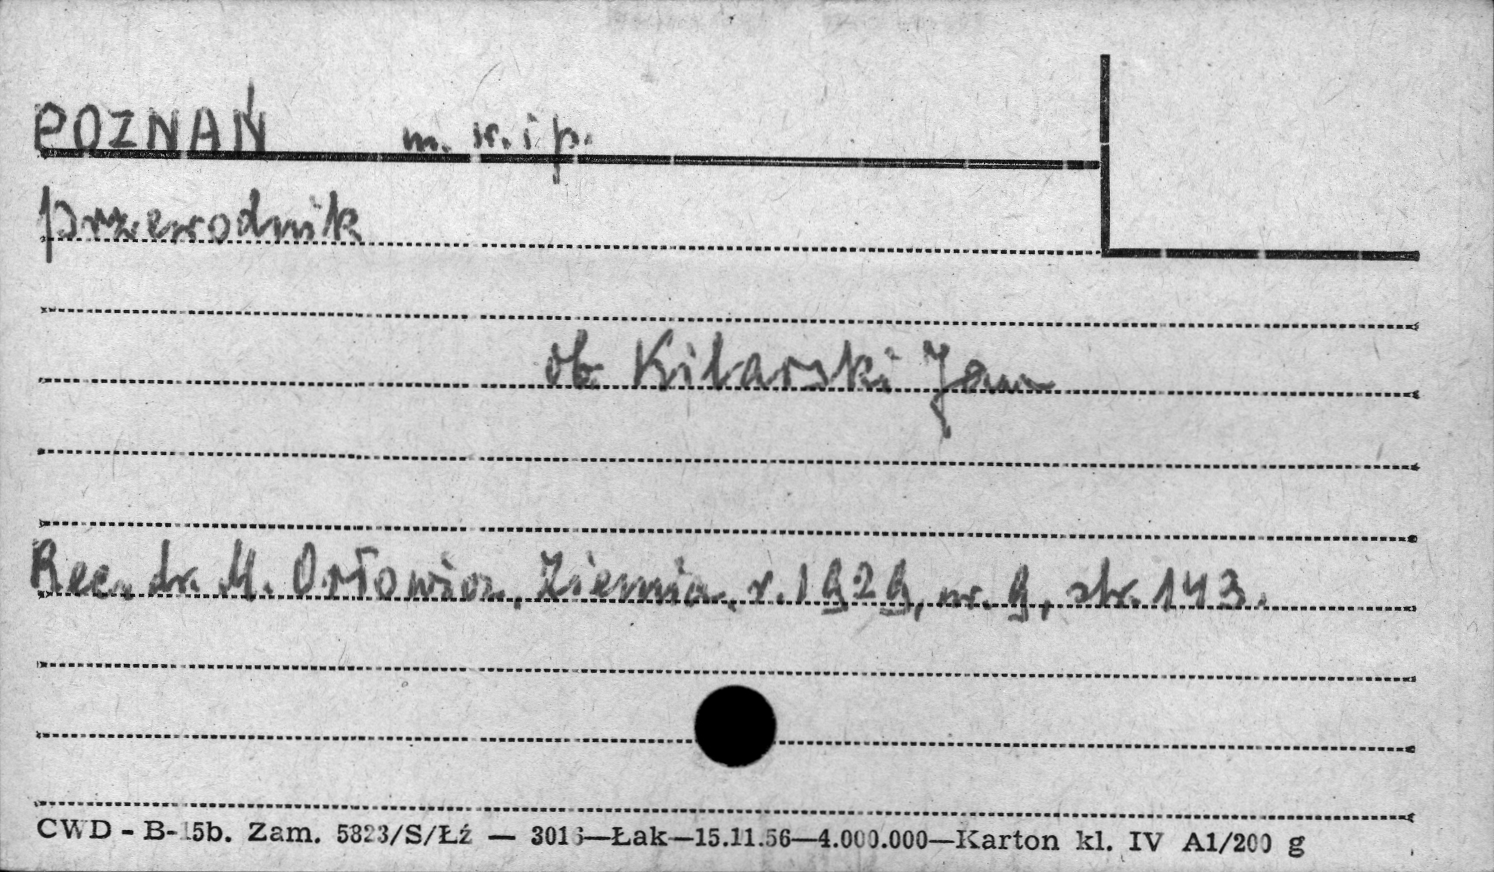 POZNAŃ m. w. i p.
przewodnik
ob Kilarski Jan
Rec. dr. M. Orłowicz, Ziemia, r. 1929, nr. 9, str. 143.
CWD - B-15b. Zam. 5823/S/Łź — 3016—Łak—15.11.56—4.000.000—Karton kl. IV A1/200 g